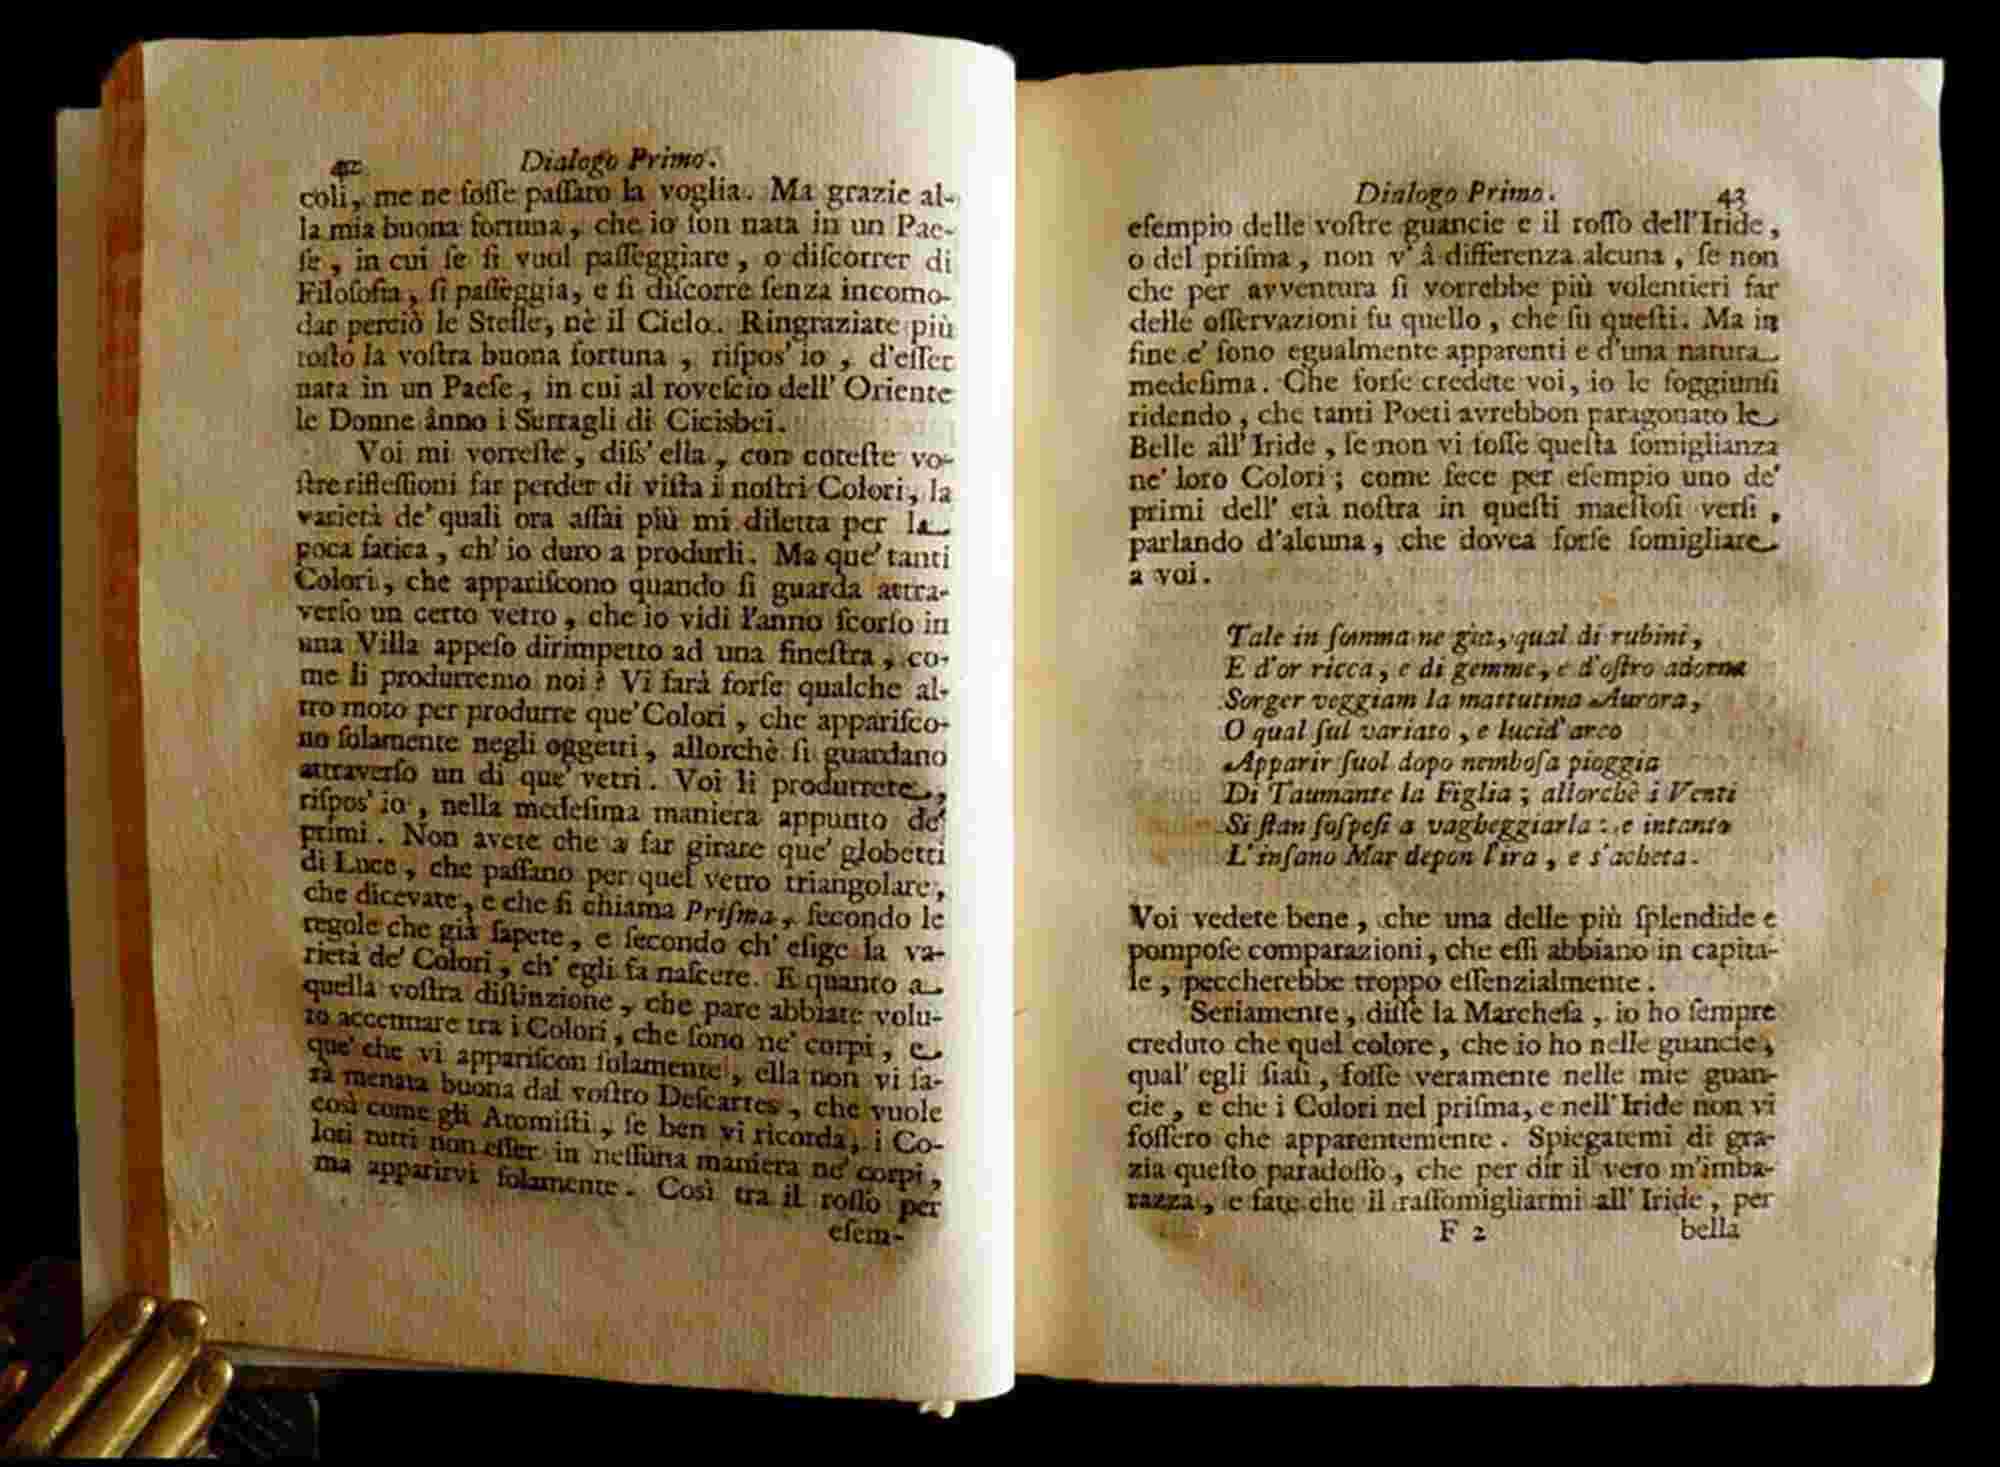 42 Dialogo Primo.
coli, me ne foſſe paſſato la voglia. Ma grazie al-
la mia buona fortuna, che io ſon nata in un Pae-
ſe, in cui ſe ſi vuol paſſeggiare, o diſcorrer di
Filoſofia, ſi paſſeggia, e ſi diſcorre ſenza incomo-
dar perciò le Stelle, nè il Cielo. Ringraziate più
toſto la voſtra buona fortuna, riſpos' io, d'eſſer
nata in un Paeſe, in cui al roveſcio dell' Oriente
le Donne ânno i Serragli di Cicisbei.
Voi mi vorreſte, diſs' ella, con coteſte vo-
ſtre rifleſſioni far perder di viſta i noſtri Colori, la
varietà de' quali ora aſſai più mi diletta per la
poca fatica, ch' io duro a produrli. Ma que' tanti
Colori, che appariſcono quando ſi guarda attra-
verſo un certo vetro, che io vidi l'anno ſcorſo in
una Villa appeſo dirimpetto ad una fineſtra, co-
me li produrremo noi? Vi farà forſe qualche al-
tro moto per produrre que' Colori, che appariſco-
no ſolamente negli oggetti, allorchè ſi guardano
attraverſo un di que' vetri. Voi li produrrete,
riſpos' io, nella medeſima maniera appunto de'
primi. Non avete che a far girare que' globetti
di Luce, che paſſano per quel vetro triangolare,
che dicevate, e che ſi chiama Priſma, ſecondo le
regole che già ſapete, e ſecondo ch' eſige la va-
rietà de' Colori, ch' egli fa naſcere. E quanto a
quella voſtra diſtinzione, che pare abbiate volu-
to accennare tra i Colori, che ſono ne' corpi, e
que' che vi appariſcon ſolamente, ella non vi ſa-
rà menata buona dal voſtro Deſcartes, che vuole
così come gli Atomiſti, ſe ben vi ricorda, i Co-
lori tutti non eſſer in neſſuna maniera ne' corpi,
ma apparirvi ſolamente. Così tra il roſſo per
eſem-
Dialogo Primo. 43
eſempio delle voſtre guancie e il roſſo dell'Iride,
o del priſma, non v' â differenza alcuna, ſe non
che per avventura ſi vorrebbe più volentieri far
delle oſſervazioni ſu quello, che ſu queſti. Ma in
fine e' ſono egualmente apparenti e d'una natura
medeſima. Che forſe credete voi, io le ſoggiunſi
ridendo, che tanti Poeti avrebbon paragonato le
Belle all'Iride, ſe non vi foſſe queſta ſomiglianza
ne' loro Colori; come fece per eſempio uno de'
primi dell' età noſtra in queſti maeſtoſi verſi,
parlando d'alcuna, che dovea forſe ſomigliare
a voi.
Tale in ſomma ne gia, qual di rubini,
E d'or ricca, e di gemme, e d'oſtro adorna
Sorger veggiam la mattutina Aurora,
O qual ſul variato, e lucid' arco
Apparir ſuol dopo nemboſa pioggia
Di Taumante la Figlia; allorchè i Venti
Si ſtan ſoſpeſi a vagheggiarla: e intanto
L' inſano Mar depon l'ira, e s'acheta.
Voi vedete bene, che una delle più ſplendide e
pompoſe comparazioni, che eſſi abbiano in capita-
le, peccherebbe troppo eſſenzialmente.
Seriamente, diſſe la Marcheſa, io ho ſempre
creduto che quel colore, che io ho nelle guancie,
qual' egli ſiaſi, foſſe veramente nelle mie guan-
cie, e che i Colori nel priſma, e nell' Iride non vi
foſſero che apparentemente. Spiegatemi di gra-
zia queſto paradoſſo, che per dir il vero m'imba-
razza, e fate che il raſſomigliarmi all' Iride, per
F 2 bella